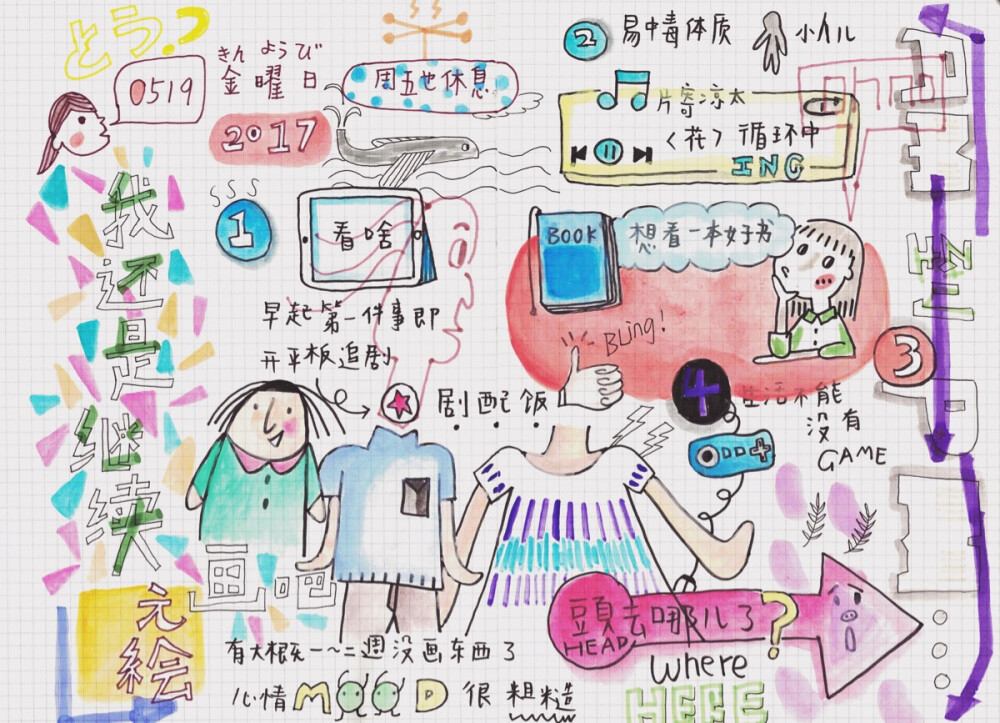 とう?
0519
きん ようび
金曜日
2017
周五也休息
2 易中毒体质
小人儿
片寄凉太
〈花〉循环中
ING
1
看啥
早起第一件事即
开平板追剧
剧配饭
...
BOOK
想看一本好书
BLing!
3
4
生活不能
没有
GAME
我还是继续
画吧
元絵
有大概一~二週没画东西了
心情 MOOD 很 粗糙
頭去哪儿了?
HEAD
where
HERE